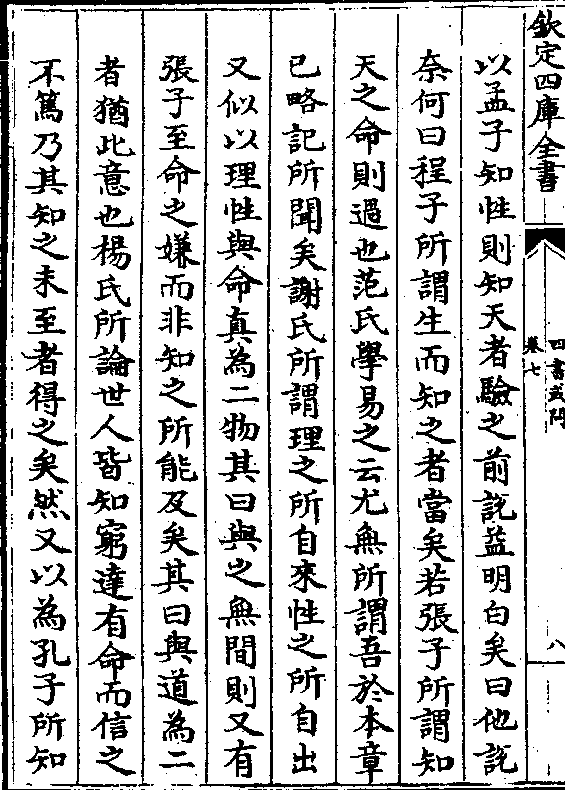 欽定四庫全書
四書或問
卷七
八
以孟子知性則知天者驗之前説益明白矣曰他説
奈何曰程子所謂生而知之者當矣若張子所謂知
天之命則過也范氏學易之云尤無所謂吾於本章
已略記所聞矣謝氏所謂理之所自來性之所自出
又似以理性與命真為二物其曰與之無間則又有
張子至命之嫌而非知之所能及矣其曰與道為二
者猶此意也楊氏所論世人皆知窮達有命而信之
不篤乃其知之未至者得之矣然又以為孔子所知